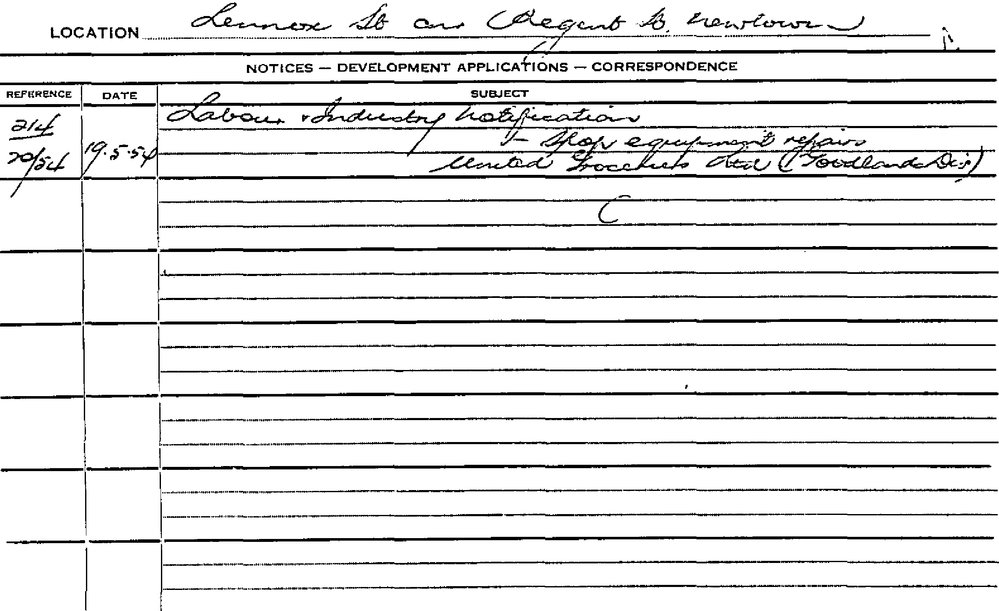 LOCATION Lennox St cnr Regent St. Newtown
NOTICES — DEVELOPMENT APPLICATIONS — CORRESPONDENCE
REFERENCE DATE SUBJECT
214 Labour & Industry Notification
20/54 19.5.54 - Shop equipment repairs
United Groceries Ltd (Foodlands Div)